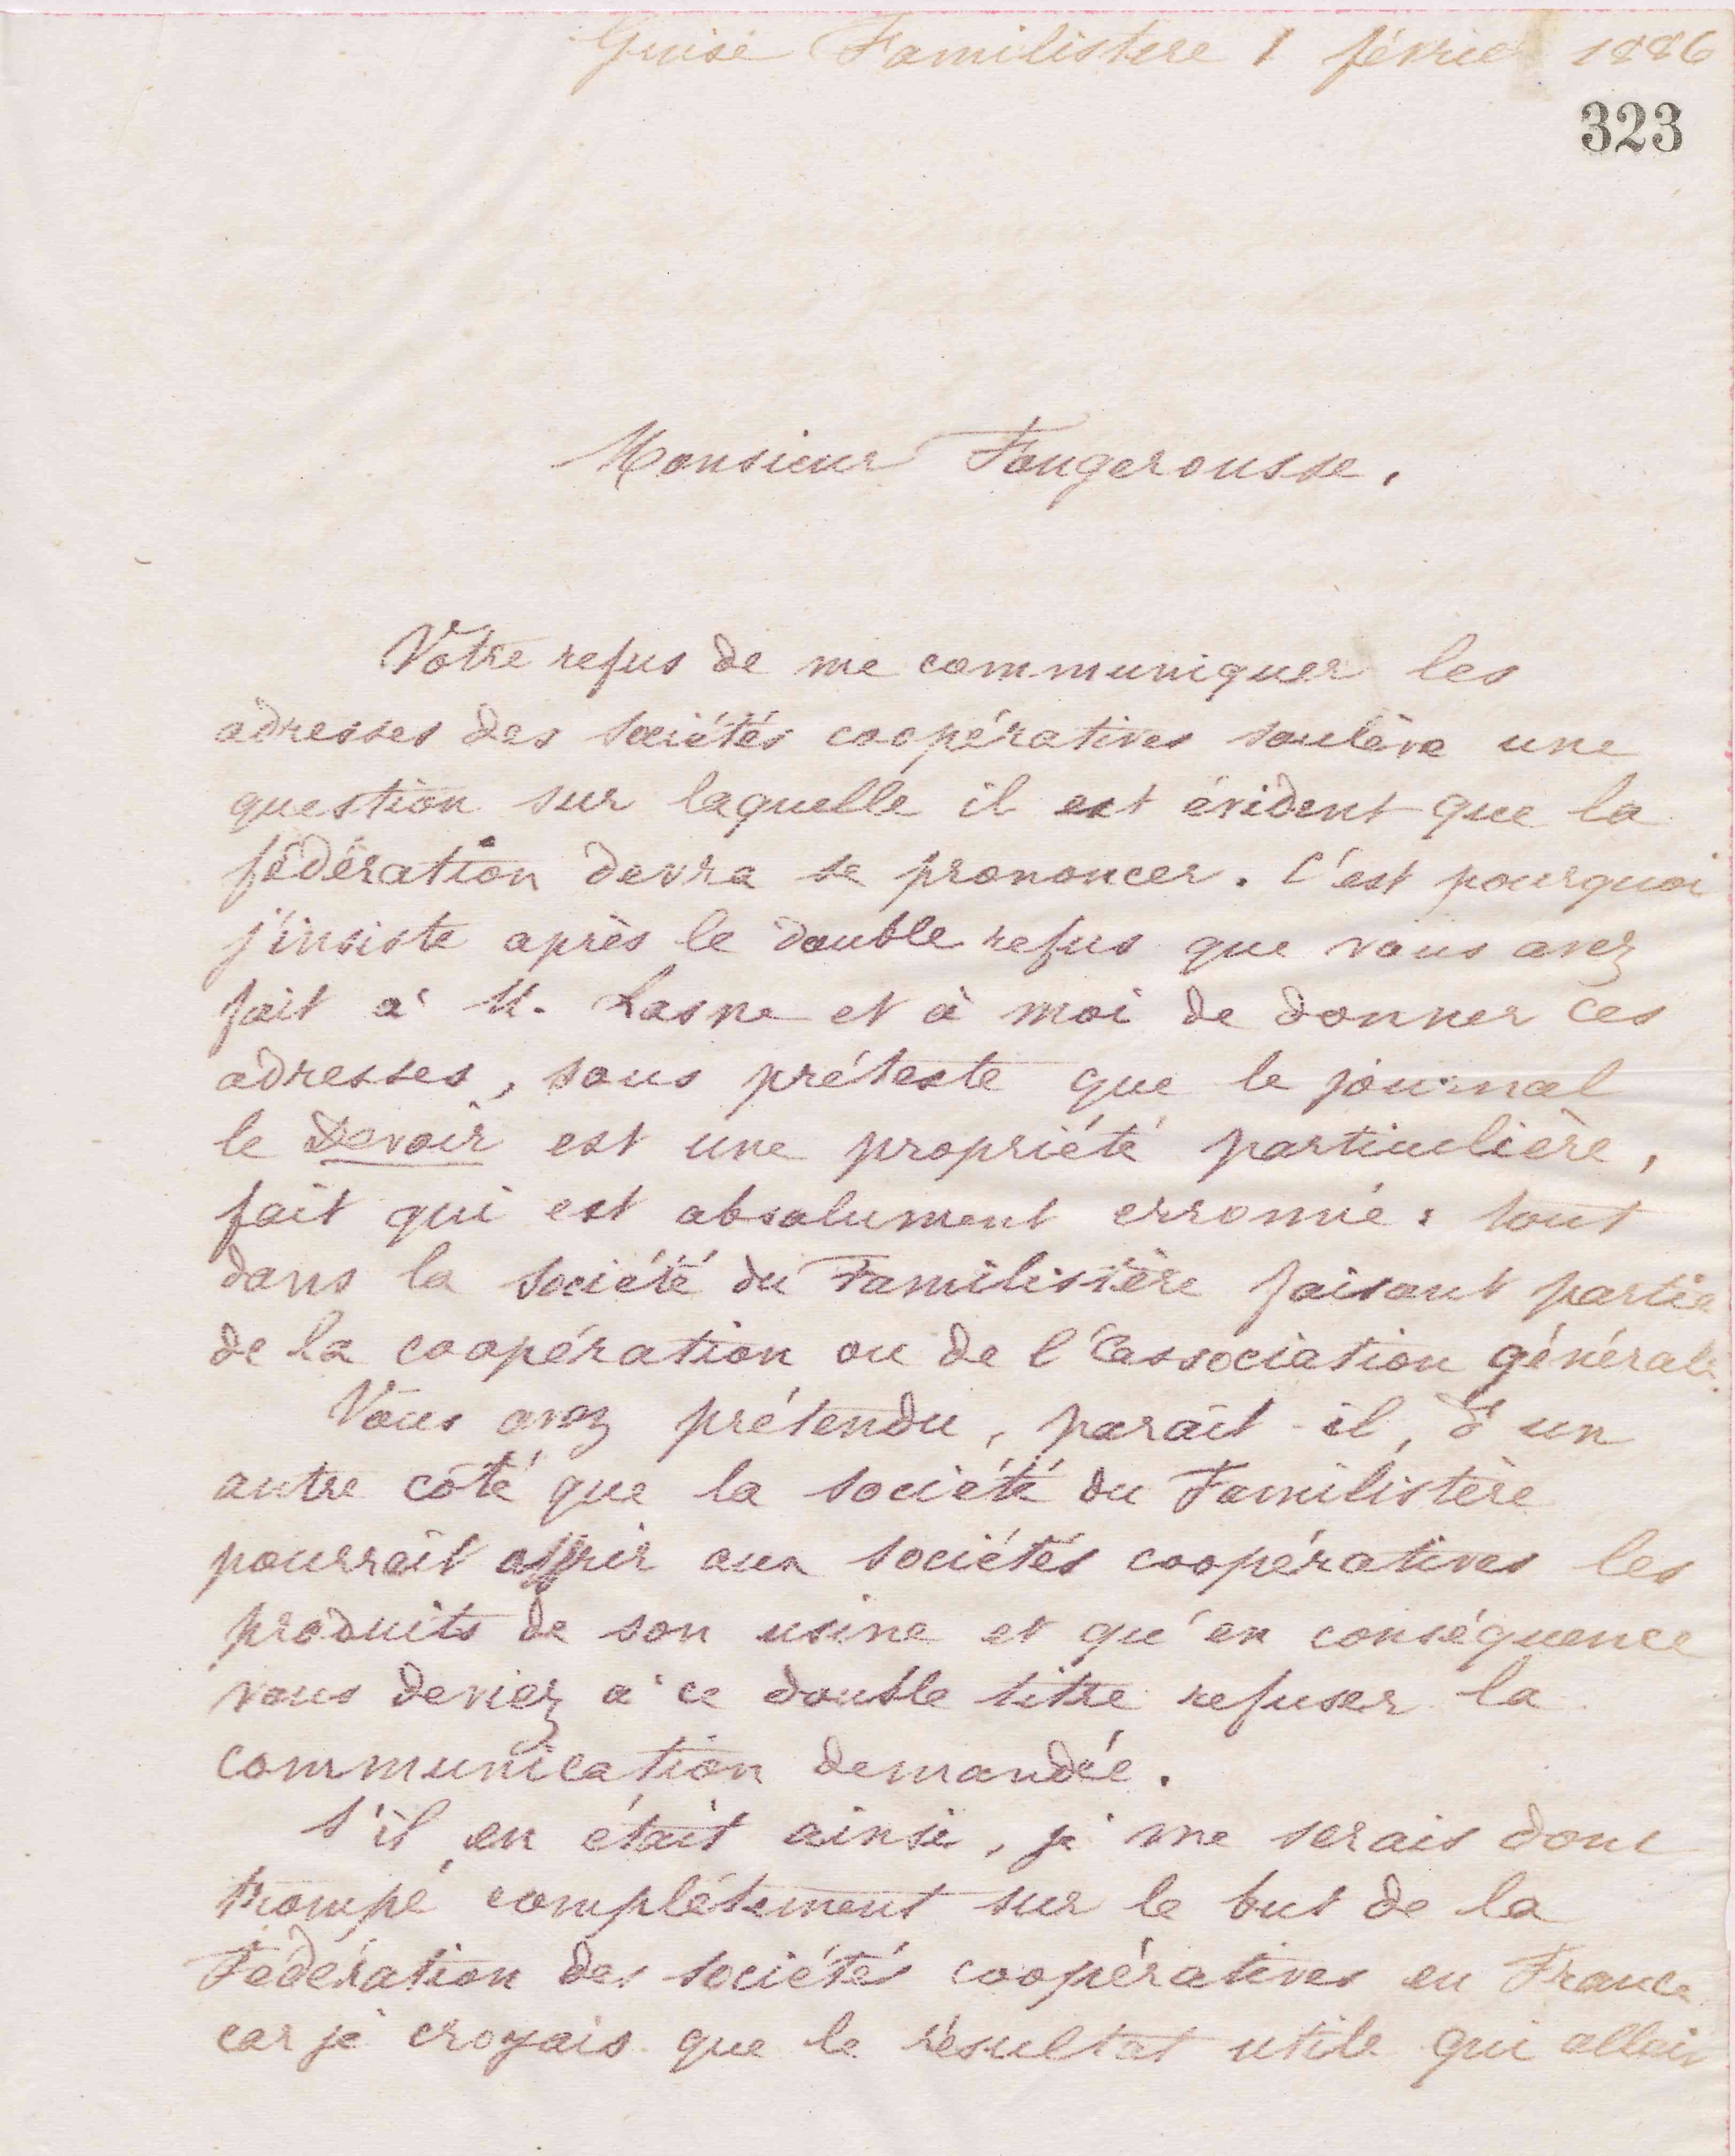 Guise Familistère 1 février 1886
323
Monsieur Fougerousse,
Votre refus de me communiquer les
adresses des sociétés coopératives soulève une
question sur laquelle il est évident que la
fédération devra se prononcer. C'est pourquoi
j'insiste après le double refus que vous avez
fait à M. Lasne et à moi de donner ces
adresses, sous prétexte que le journal
le Devoir est une propriété particulière,
fait qui est absolument erronné : tout
dans la société du Familistère faisant partie
de la coopération ou de l'association générale.
Vous avez prétendu, parait-il, d'un
autre côté que la société du Familistère
pourrait offrir aux sociétés coopératives les
produits de son usine et qu'en conséquence
vous deviez à ce double titre refuser la
communication demandée.
S'il en était ainsi, je me serais donc
trompé complètement sur le but de la
Fédération des sociétés coopératives en France
car je croyais que le résultat utile qui allait